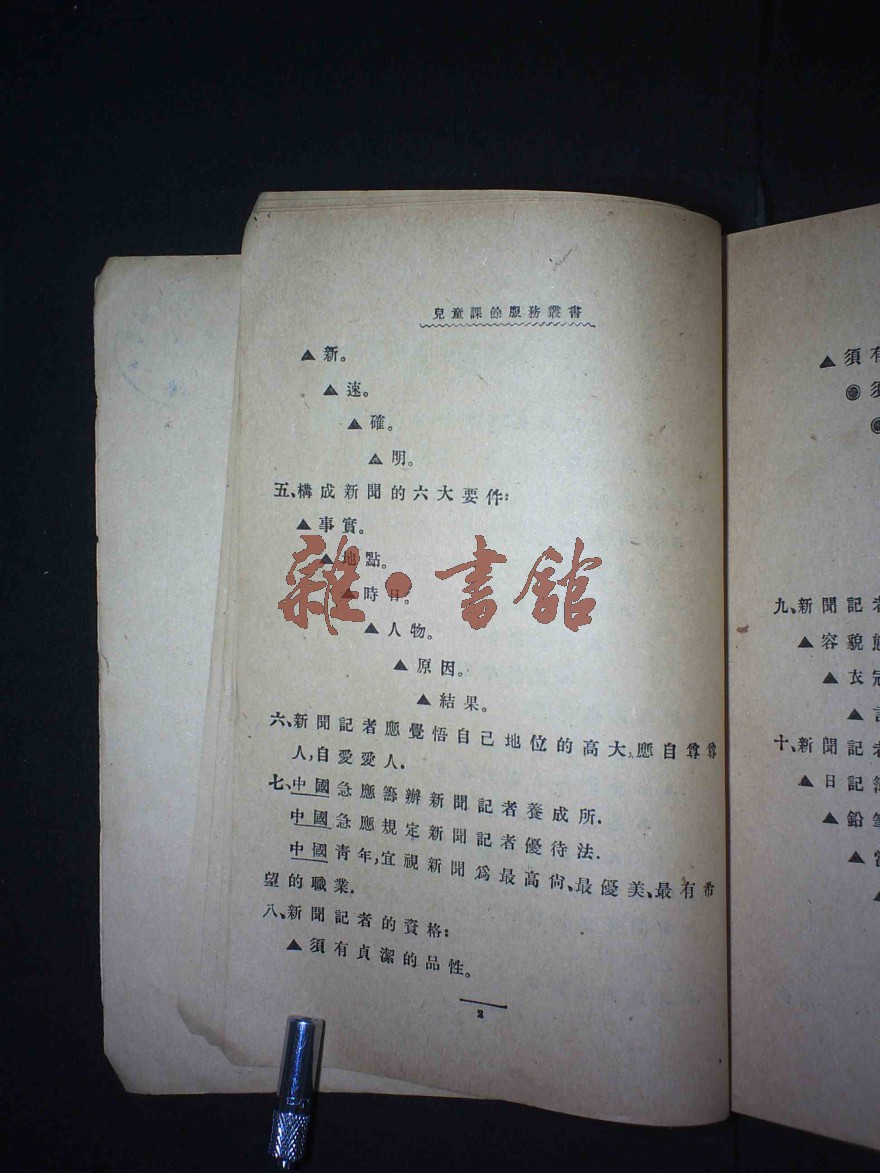 兒童課餘服務叢書
▲新。
▲速。
▲確。
▲明。
五、構成新聞的六大要件：
▲事實。
▲地點。
▲時日。
▲人物。
▲原因。
▲結果。
六、新聞記者應覺悟自己地位的高大，應自尊尊
人，自愛愛人．
七、中國急應籌辦新聞記者養成所．
中國急應規定新聞記者優待法．
中國靑年，宜視新聞爲最高尙、最優美、最有希
望的職業．
八、新聞記者的資格：
▲須有貞潔的品性。
2
雜·書館
▲須有
◉須
九、新聞記者
▲容貌態
▲衣冠
十、新聞記者
▲日記簿
▲鉛筆
▲當